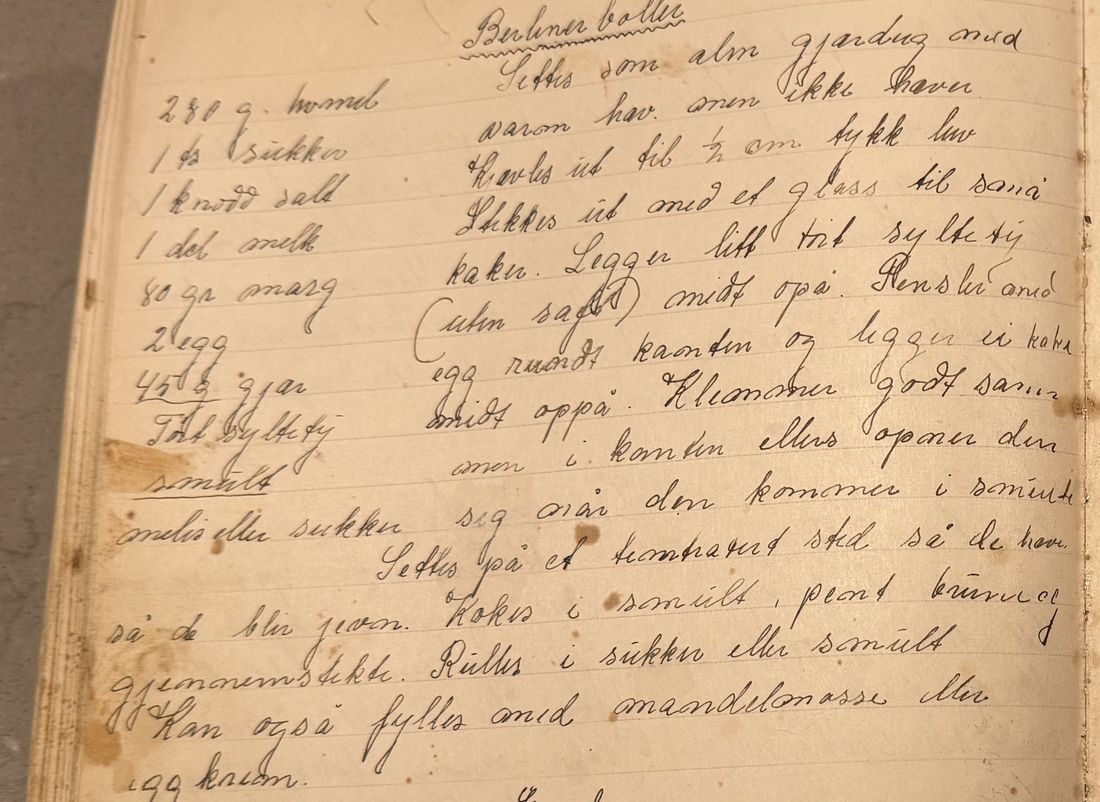 Berlinerboller
280 g. hvmel
1 ts sukker
1 knodd salt
1 del melk
80 gr marg
2 egg
45 g gjær
Tørt syltetÿ
smult
melis eller sukker
Settes som alm gjærdeig med
varom hav. men ikke hæver
Kjevles ut til ½ cm tykk leiv
Stikkes ut med et glass til små
kaker. Legger litt tørt syltetÿ
(uten saft) midt opå. Pensler med
egg rundt kanten og legger ei kake
midt oppå. Klemmer godt samn
men i kanten ellers opner den
seg når den kommer i smulte
Settes på et temtratert sted så de hæve
så de blir jevn. Kokes i smult, pent brune og
gjennemstekte. Rulles i sukker eller smult
Kan også fylles med mandelmasse eller
egg krem.